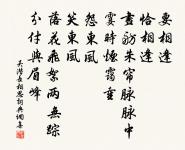 要相逢
恰相逢
畫舫朱帘脉脉中
霎時煙靄重
怨東風
笑東風
落花飛絮兩無踪
分付與眉峰
吴潛長相思詞